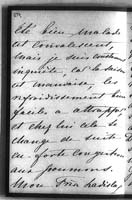 été bien malade
et convalescent,
mais je suis toujours
inquiète, car la saison
est mauvaise, les
refroidissement bien
faciles a attrapper
et chez lui cela se
change de suite
en forte congestion
aux poumons.
Mon Ladislas